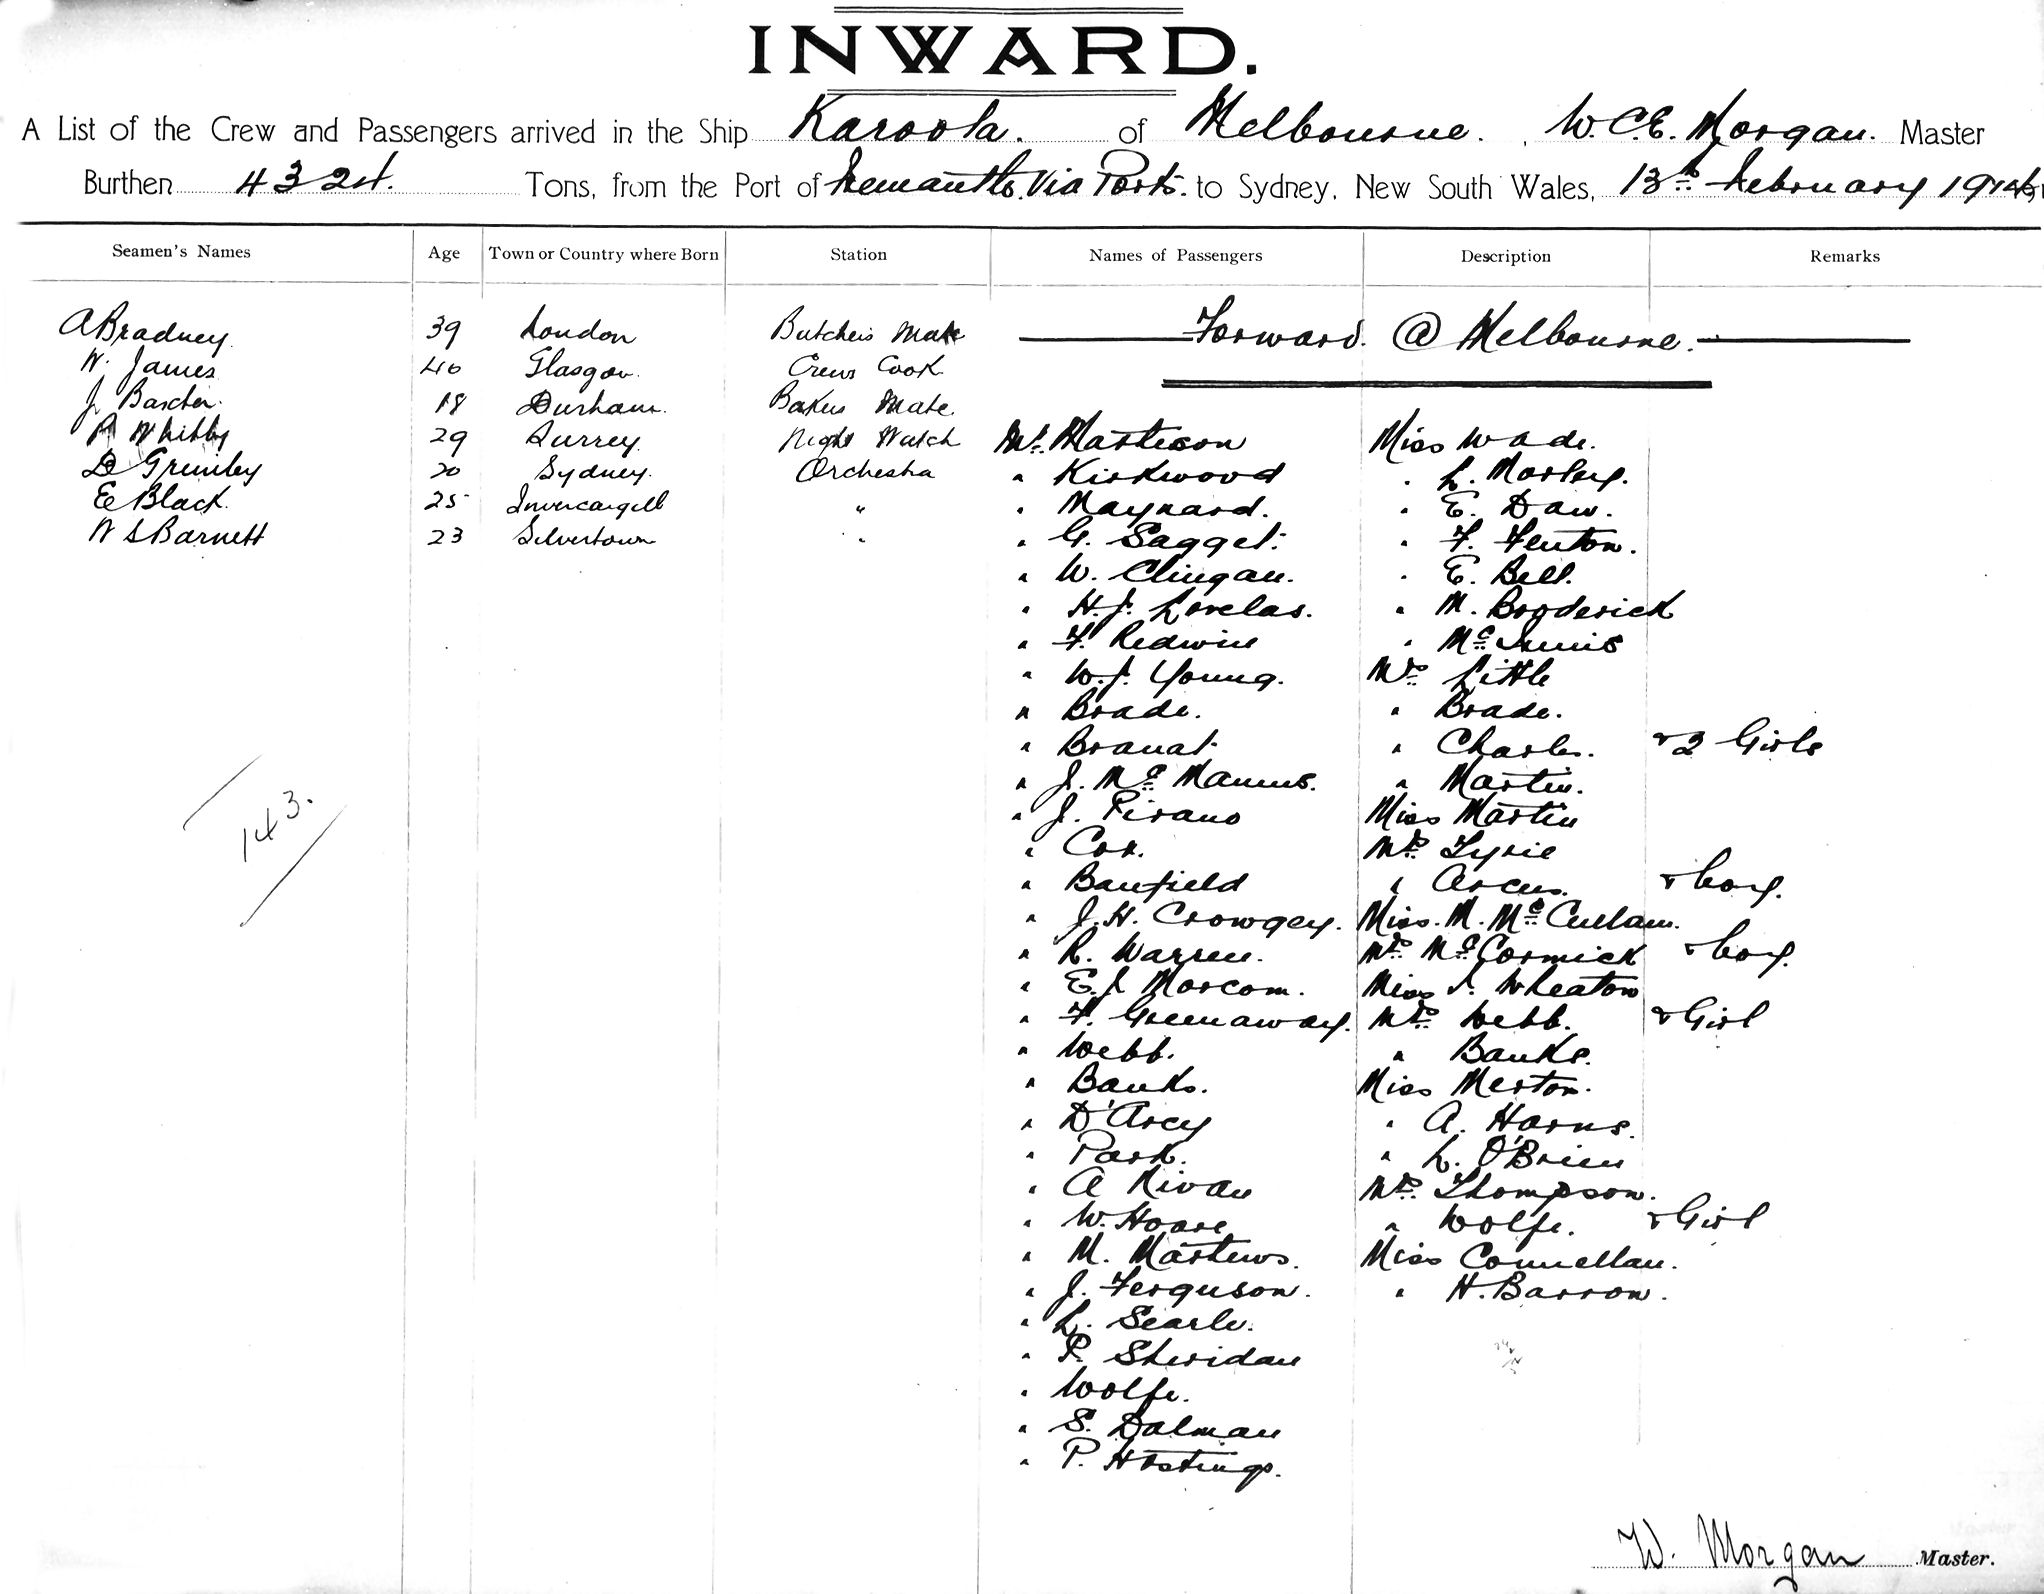 INWARD.
A List of the Crew and Passengers arrived in the Ship Karoola. of Melbourne. W.C.E. Morgan. Master
Burthen 4324. Tons, from the Port of Fremantle Via Ports. to Sydney, New South Wales, 13th February 191
Seamen's Names Age Town or Country where Born Station Names of Passengers Description Remarks
A Bradney 39 London Butchers Mate Forward @ Melbourne.
W. James 40 Glasgow. Crews Cook
J Baxter. 18 Durham. Bakers Mate
Whitby 29 Surrey. Night Watch Mr. Miss Wade.
D Grimley 20 Sydney. Orchestra " Kirkwood " L.
E Black. 25 Invercargill " " Maynard. " E. Daw.
W S Barnett 23 Silvertown " " G. Sagget. " F. Fenton.
" W. Clingan. " E. Bell.
" H.J. Lovelas. " M. Broderick
" F. Redwin " McInnis
" W.J. Young. Mrs Little
" Brade. " Brade.
" " Charles. & 2 Girls
" J. McManus. " Martin.
" J. Pirano Miss Martin
" Cox. Mrs Lyrie
" Banfield " Arcus. & boy.
" J.H. Crowgey. Miss. M. McCullam.
" R. Warren. Mrs McCormick & boy.
" E.J Morcom. Miss Wheaton
" F. Greenaway. Mrs Webb. & Girl
" Webb. " Banks.
" Banks. Miss Merton.
" D'Arcy " A. Harns.
" Park. " L. O'Brien
" A Kivan Mrs. Thompson.
" W. Hoare " Wolfe. & Girl
143.
" M. Mathews. Miss Connellan.
" J. Ferguson. " H. Barron.
" L. Searle.
" P. Sheridan
" Wolfe.
" S. Dalman
" P. Hastings.
W. Morgan Master.